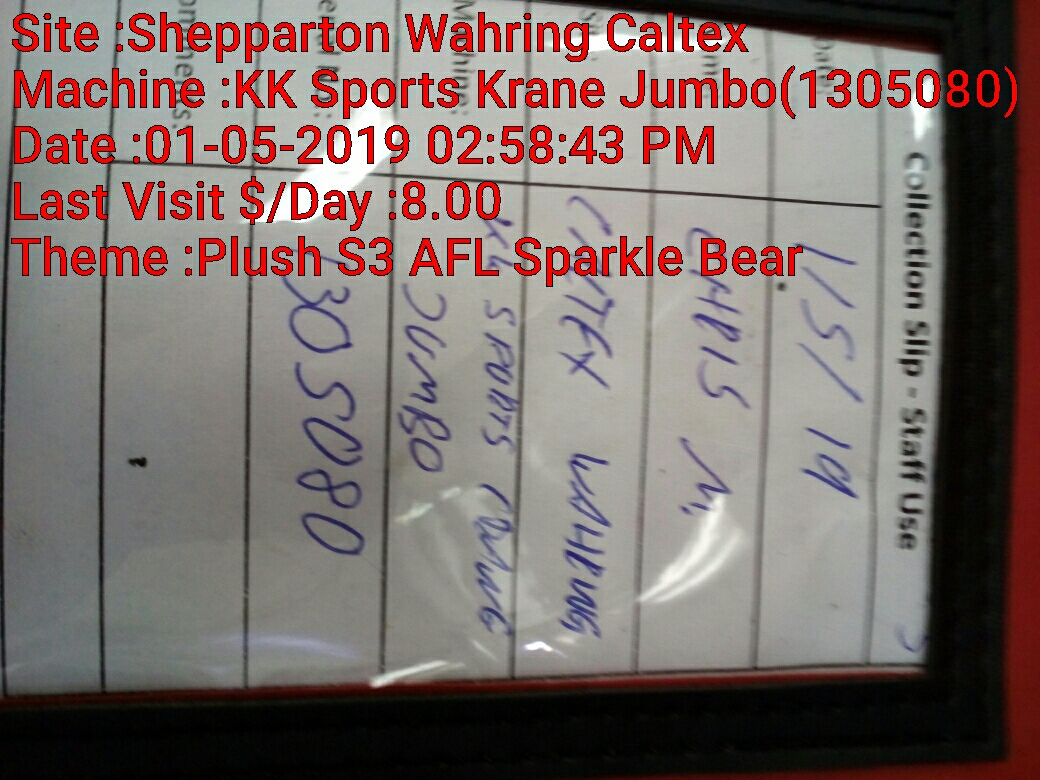 Site :Shepparton Wahring Caltex
Machine :KK Sports Krane Jumbo(1305080)
Date :01-05-2019 02:58:43 PM
Last Visit $/Day :8.00
Theme :Plush S3 AFL Sparkle Bear
Collection Slip - Staff Use
1/5/19
CHRIS M.
CALTEX WAHRING
SPORTS
JUMBO
Machine:
1305080